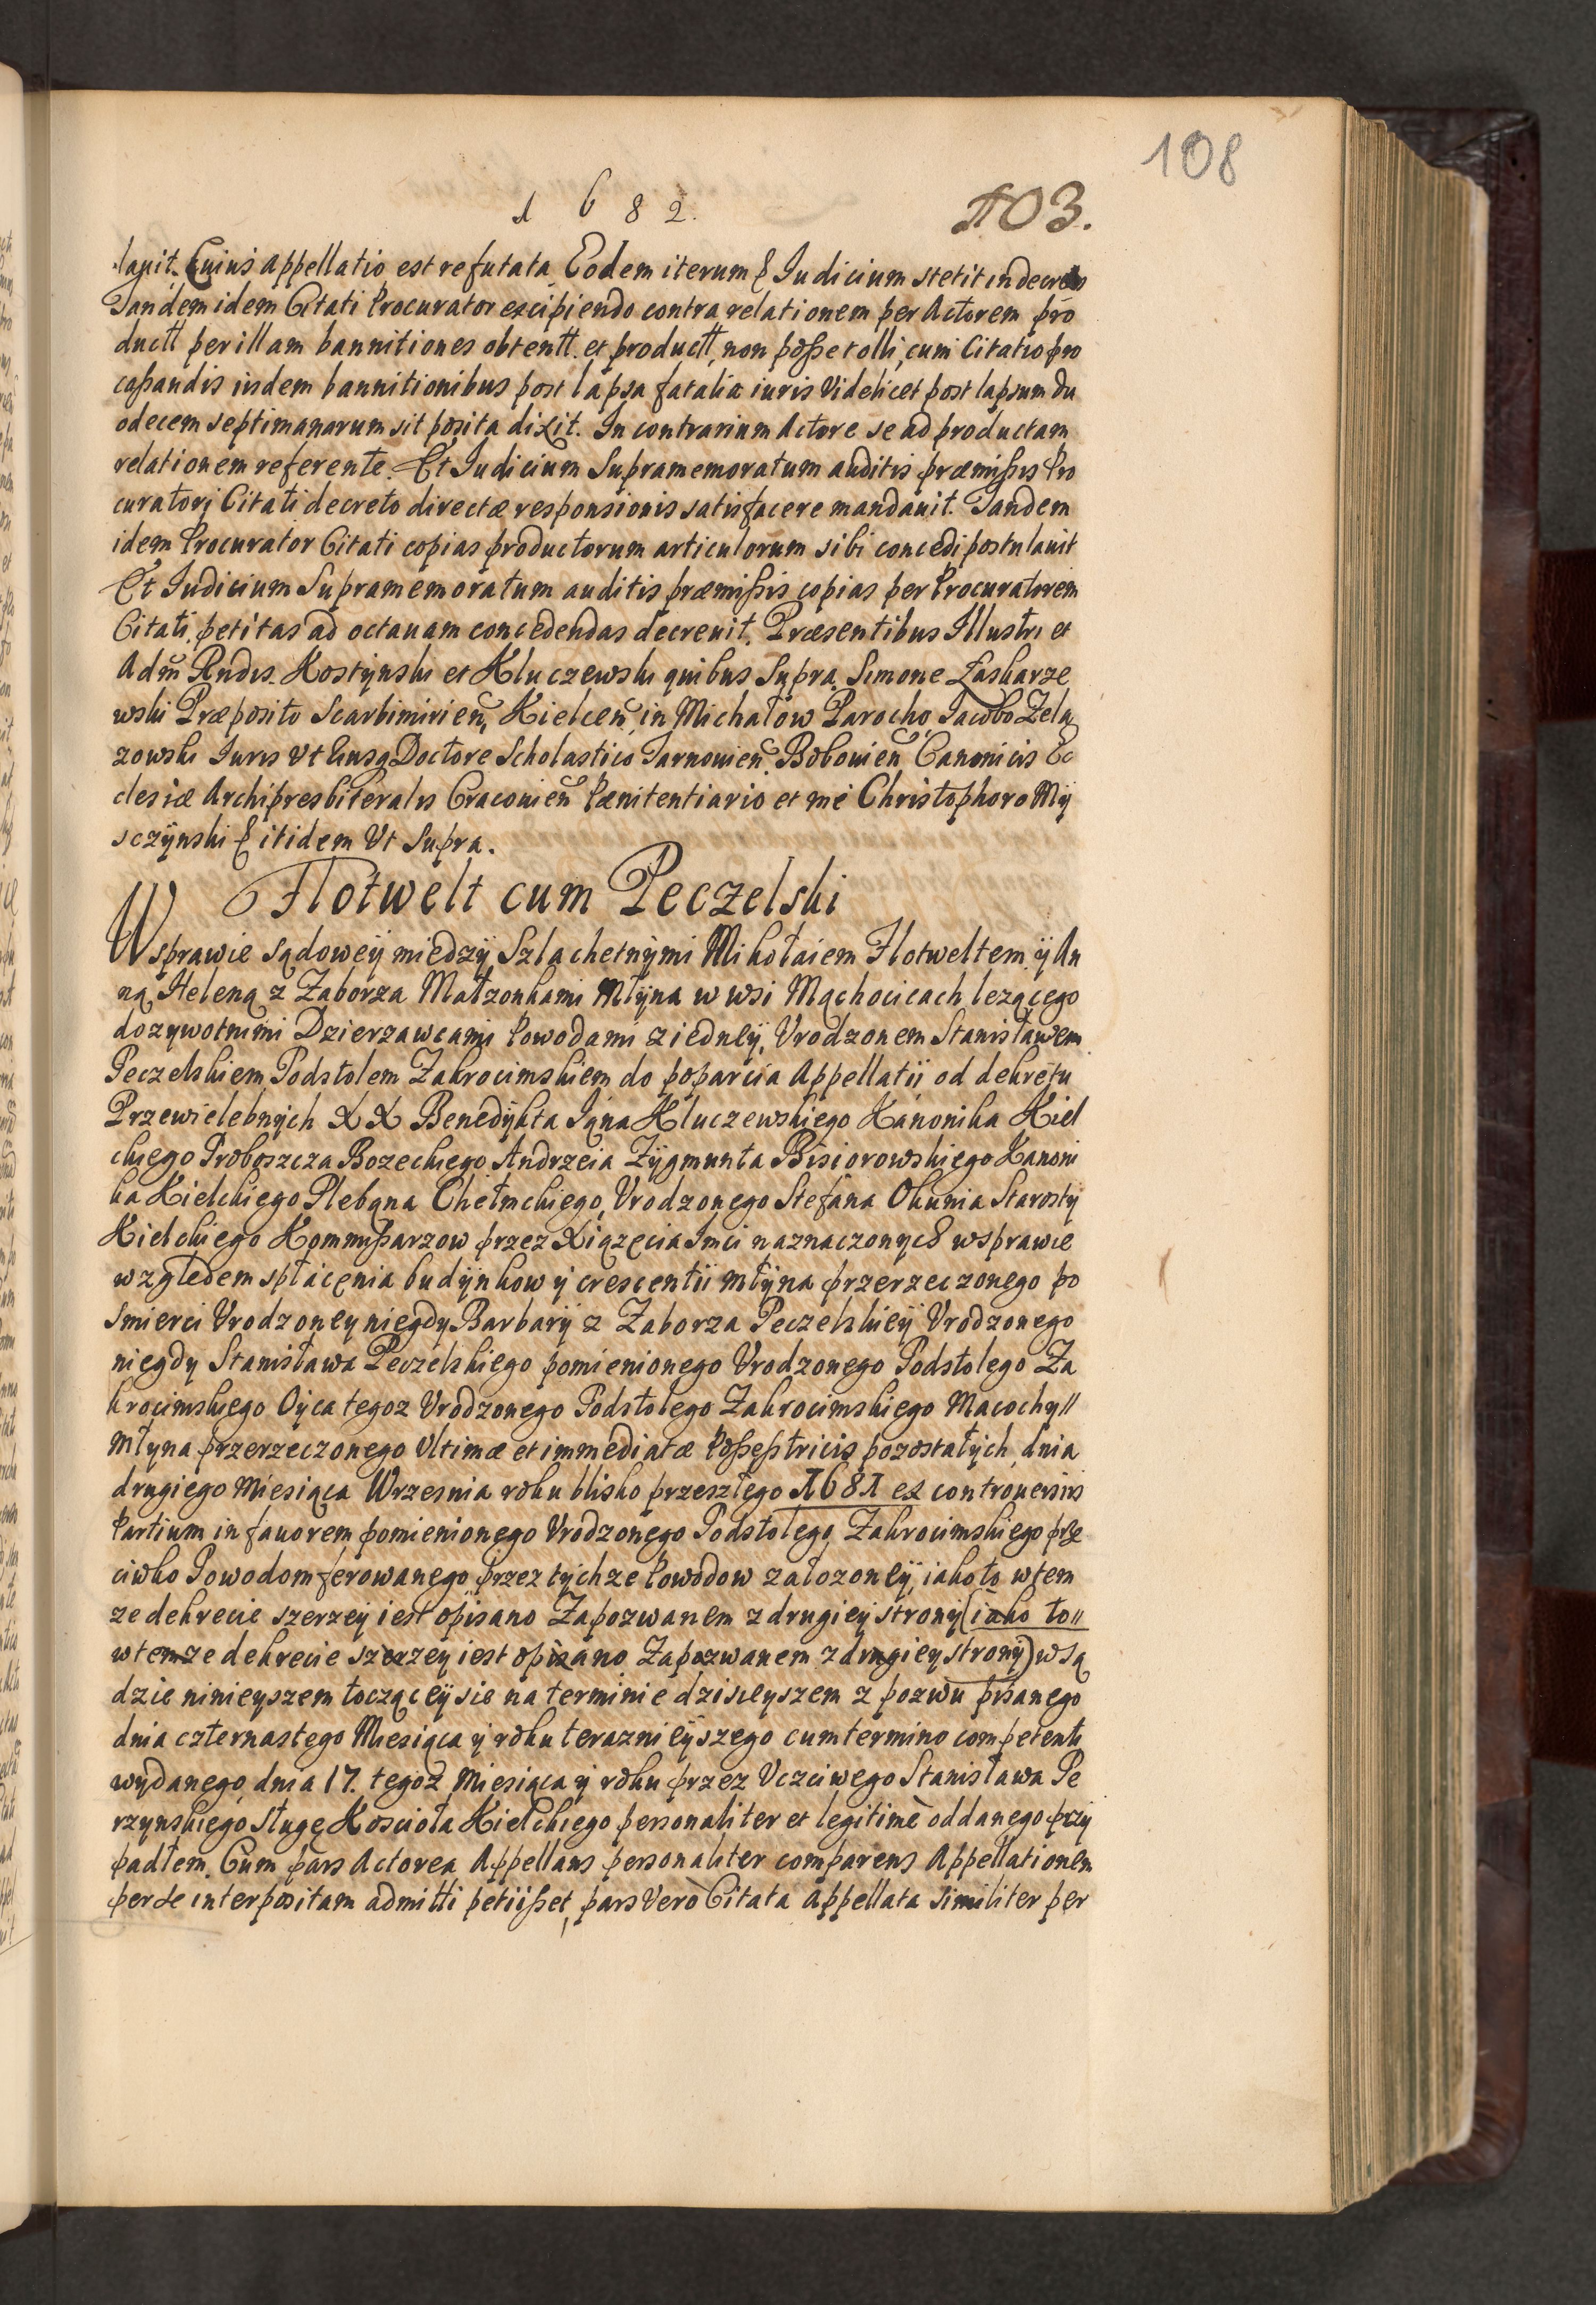 108
1682.
103.
lauit. Cuius Appellatio est refutata Eodem iterum & Iudicium stetit in decreto
Tandem idem Citati Procurator excipiendo contra relationem per Actorem pro
ductt per illam bannitiones obtentt. et productt, non posse tolli, cum Citatio pro
cassandis iisdem bannitionibus post lapsa fatalia iuris Videlicet post lapsum du
odecem septimanarum sit posita dixit. In contrarium Actore se ad productam
relationem referente. Et Iudicium Supramemoratum auditis præmissis Pro
curatori Citati decreto directæ responsionis satisfacere mandauit. Tandem
idem Procurator Citati copias productorum articulorum sibi concedi postulauit
Et Iudicium Supramemoratum auditis præmissis copias per Procuratorem
Citati, petitas ad octauam concedendas decreuit. Præsentibus Illustri et
Adm Rndis. Kostynski et Kluczewski quibus Supra, Simone Łaskarze
wski Præposito Scarbimirien, Kielcen, in Michałow Parocho, Iacobo Zela
zowski Iuris Vt Eiusq Doctore Scholastico Tarnouien, Bobouien Canonicis Ec
clesiæ Archipresbiteralis Cracouien Pænitentiario et me Christophoro My
sczÿnski & itidem Vt Supra.
Flotwelt cum Peczelski
W sprawie sądoweÿ miedzÿ Szlachetnÿmi Mikołaiem Flotweltem ÿ An
ną Heleną z Zaborza Małzonkami Młÿna w wsi Mąchocicach lezącego
dozywotnimi Dzierzawcami Powodami z iedneÿ, Vrodzonem Stanisławem
Peczelskiem Podstolem Zakrocimskiem do poparcia Appellatii od dekretu
Przewielebnych XX Benedÿkta Iana Kluczewskiego Kanonika Kiel
ckiego Proboszcza Bozeckiego Andrzeia Zÿgmunta Bisiorowskiego Kanoni
ka Kielckiego Plebana Chełmckiego, Vrodzonego Stefana Okunia Starosty
Kielckiego Kommissarzow przez Xiązęcia Imci naznaczonych w sprawie
względem spłacęnia budÿnkow ÿ crescentii młÿna przerzeczonego po
Smierci Vrodzoneÿ niegdy Barbarÿ z Zaborza Peczelskieÿ Vrodzonego
niegdy Stanisława Peczelskiego pomienionego Vrodzonego Podstolego Za
krocimskiego Oyca tegoz Vrodzonego Podstolego Zakrocimskiego Macochy //
Młyna przerzeczonego Vltimæ et immediatæ Possesstricis pozostałÿch, dnia
drugiego Miesiąca Wrzesnia roku blisko przeszłego 1681 ex controuersiis
Partium in fauorem pomienionego Vrodzonego Podstolego Zakrocimskiego prze
ciwko Powodom ferowanego przez tychze Powodow załozoneÿ, iako to w tem
ze dekrecie szerzeÿ iest opisano Zapozwanem z drugieÿ stronÿ (iako to //
w temze dekrecie szerzeÿ iest opisano Zapozwanem z drugiey stronÿ) w są
dzie ninieyszem toczącÿ sie na terminie dzisieyszem z pozwu pisanego
dnia czternastego Miesiąca ÿ roku teraznieÿszego cum termino competenti
wÿdanego, dnia 17. tegoz Miesiąca ÿ roku przez Vczciwego Stanisława Pe
rzynskiego Sługę Kosciola Kielckiego personaliter et legitimè oddanego przy
padłem, Cum pars Actorea Appellans personaliter comparens Appellationem
per se interpositam admitti petiisset, pars Verò Citata Appellata Similiter per